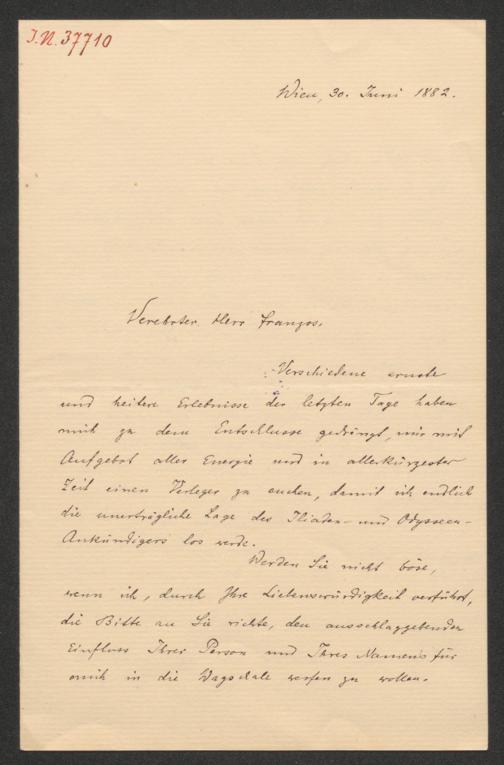 J.N. 37710
Wien, 30. Juni 1882.
Verehrter Herr Franzos.
Verschiedene ernste
und heitere Erlebnisse der letzten Tage haben
mich zu dem Entschlusse gedrängt, mir mit
Aufgebot aller Energie und in allerkürzester
Zeit einen Verleger zu suchen, damit ich endlich
die unerträgliche Lage des Iliaden- und Odysseen-
Ankündigers los werde.
Werden Sie nicht böse,
wenn ich, durch Ihre Liebenswürdigkeit verführt,
die Bitte an Sie richte, den ausschlaggebenden
Einfluss Ihrer Person und Ihres Namens für
mich in die Wagschale werfen zu wollen.